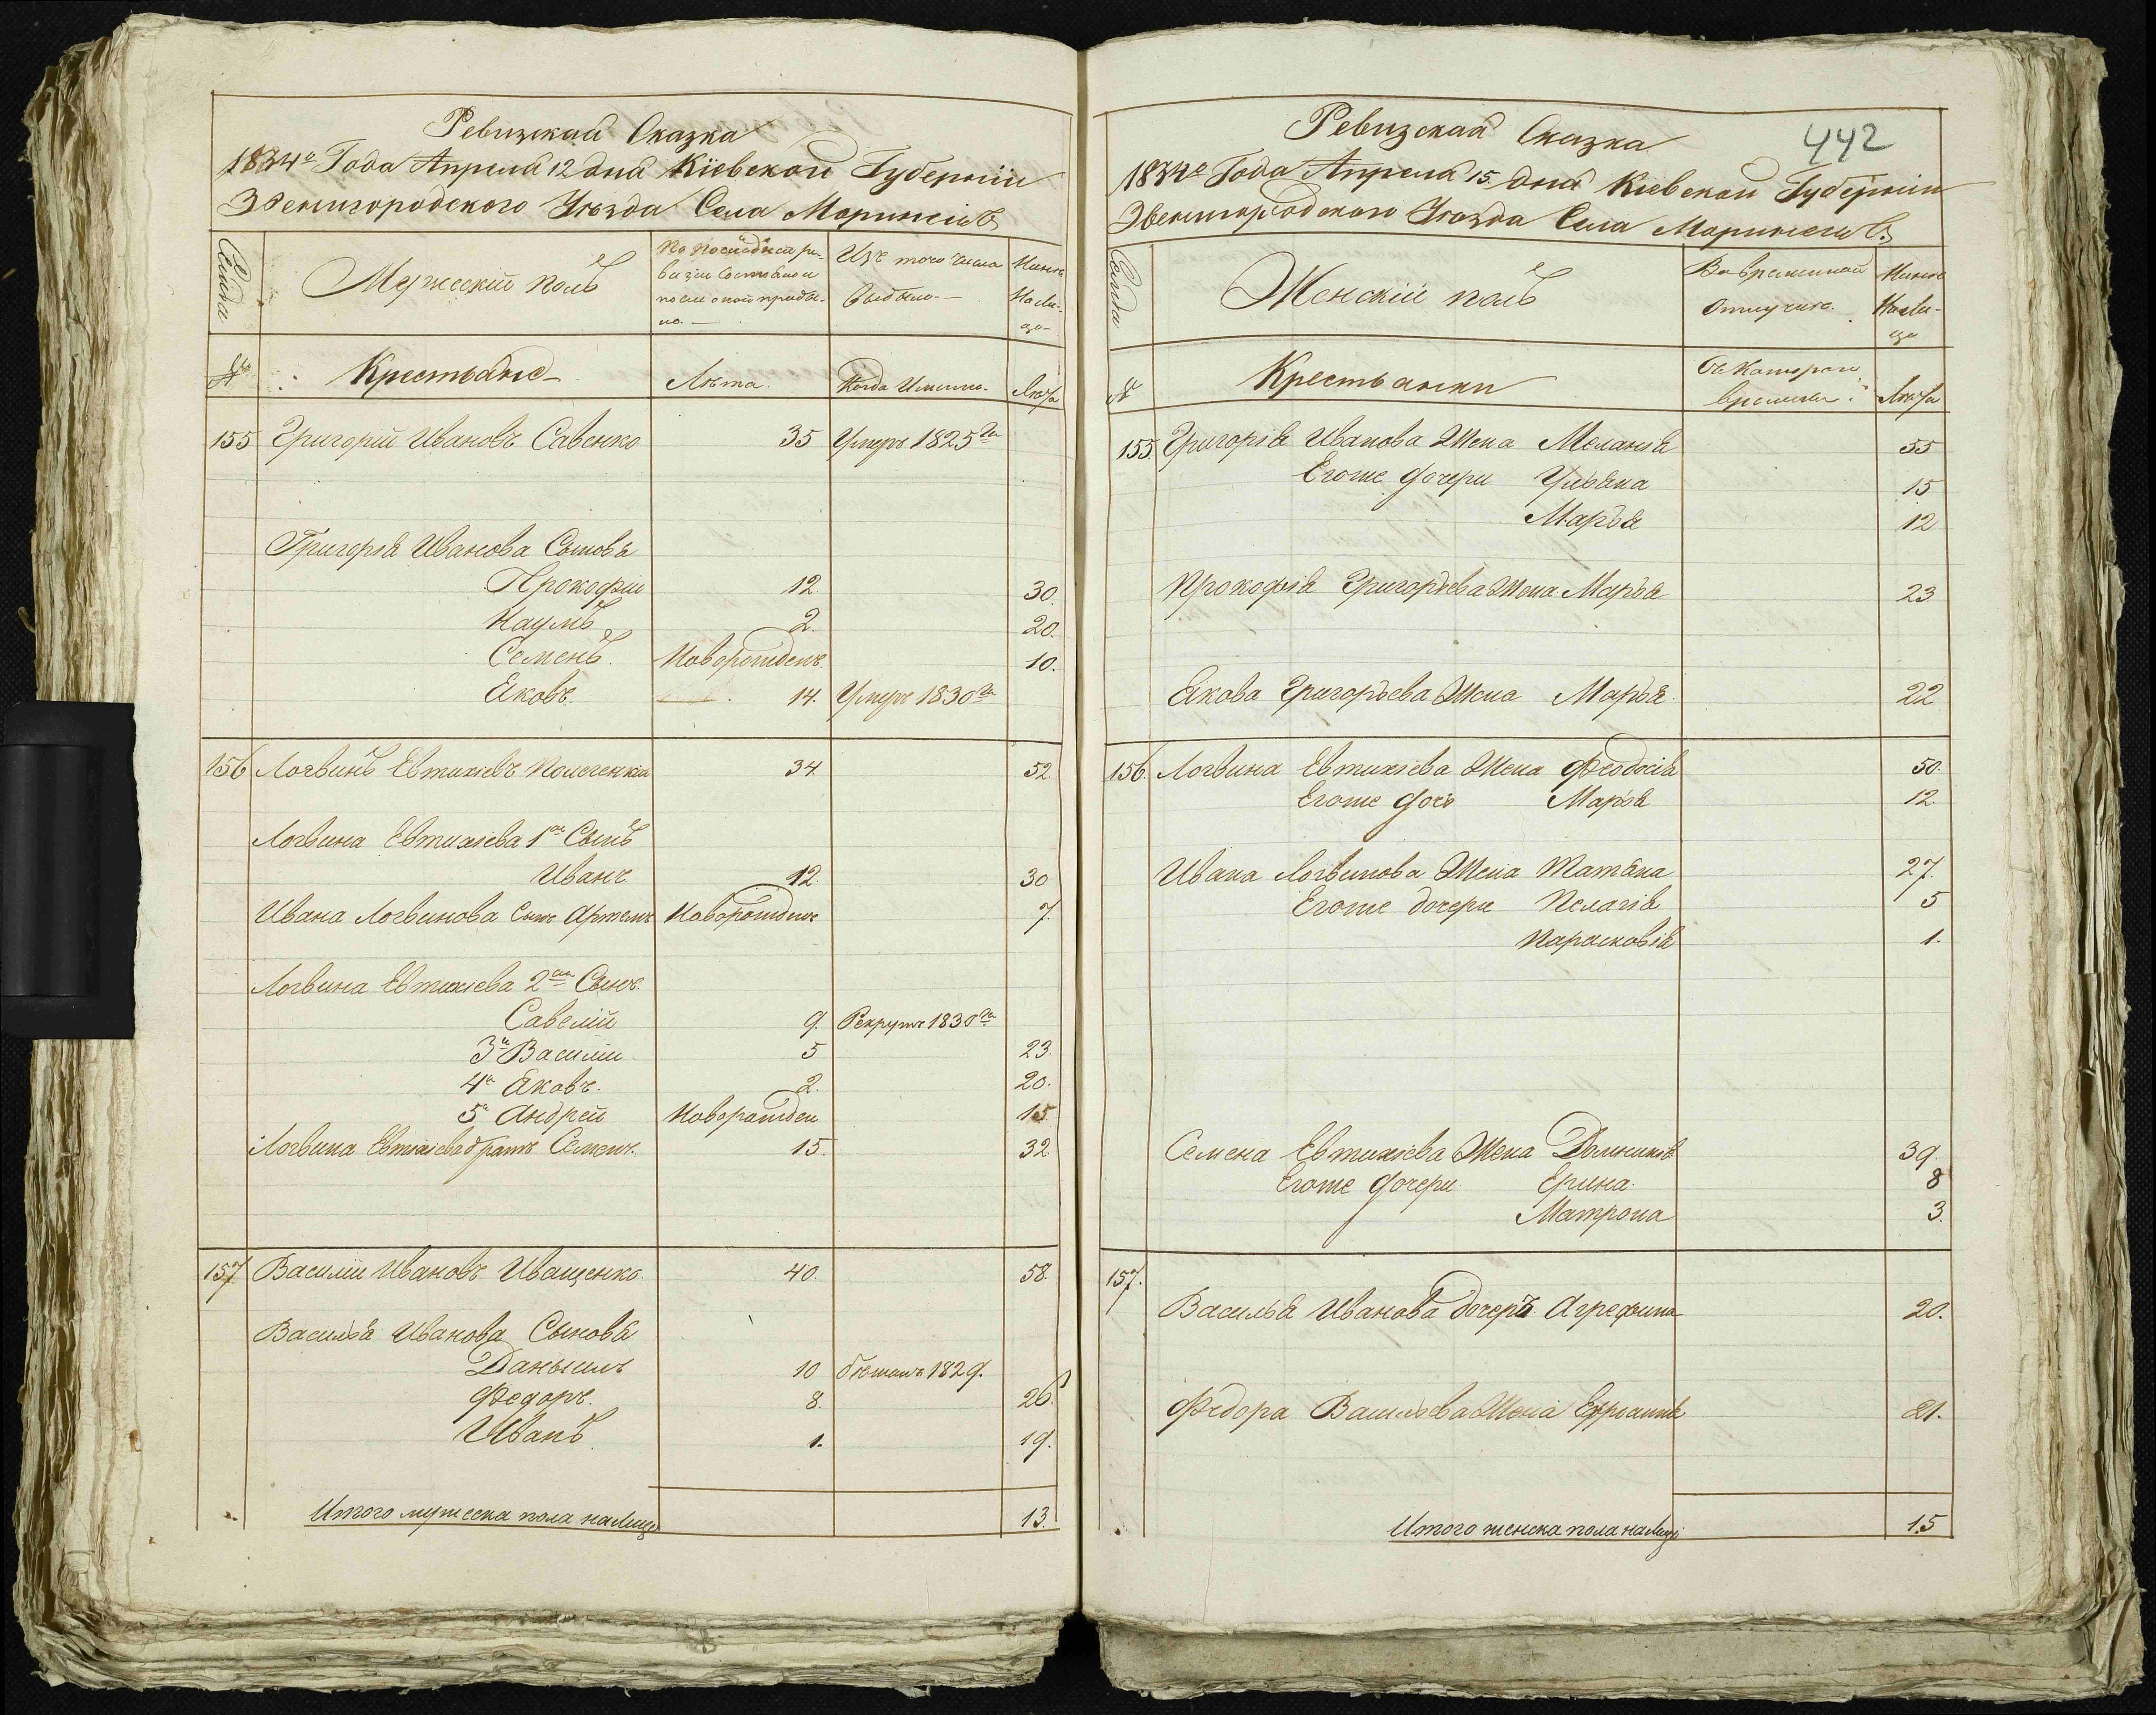 Ревизская Сказка
1834го Года Апреля 12 дня Кіевской Губерніи
Звенигородского Уезда Села Моринецъ
Семьи
Мужескій полъ
По последней ре-
визіи состояло и
после оной прибы-
ло.—
Изъ того числа
Выбыло.—
Ныне
На ли-
цо—
№
Крестьяне—
Лета.
Когда Именно.
Лета
155 Григорій Ивановъ Савенко 35 Умеръ 1825го
Григорія Иванова Сыновья
Прокофій 12. 30.
Наумъ 2. 20.
Семенъ. Новорожденъ. 10.
Яковъ. 14. Умеръ 1830го
156 Логвинъ Евтихіевъ 34. 52.
Логвина Евтихіева 1й Сынъ
Иванъ 12. 30
Ивана Логвинова Сынъ Артемъ Новорожденъ 7.
Логвина Евтихіева 2й Сынъ.
Савелій 9. Рекрутъ 1830го
3й Василій 5 23.
4й Яковъ. 2. 20.
5й Андрей Новорожден 15.
Логвина Евтихіева братъ Семенъ. 15. 32
157 Василій Ивановъ Иващенко. 40. 58.
Василья Иванова Сыновья
Даныилъ 10 бежалъ 1829.
Федоръ. 8. 26.
Иванъ. 1. 19.
Итого мужеска пола налицо 13.
442
Ревизская Сказка
1834го Года Апреля 15. дня Кіевской Губерніи
Звенигородского Уезда Села Моринецъ.
Семьи
Женскій полъ
Во временной
отлучке.
Ныне
На ли-
цо
№
Крестьянки
Съ Котораго
времени.
Лета
155. Григорія Иванова Жена Меланія 55
Егоже дочери Ульяна 15
Марья 12
Прокофія Григорьева Жена Марья 23
Якова Григорьева Жена Марья. 22
156. Логвина Евтихіева Жена Феодосія 50.
Егоже дочь Марья 12.
Ивана Логвинова Жена Татяна 27.
Егоже дочери Пелагія 5
Парасковія 1.
Семена Евтихіева Жена Домникія 39.
Егоже дочери. Ерина. 8
Матрона 3.
157.
Василья Иванова дочерь Агрефина 20.
Федора Васильева Жена 21.
Итого женска пола налицо 15